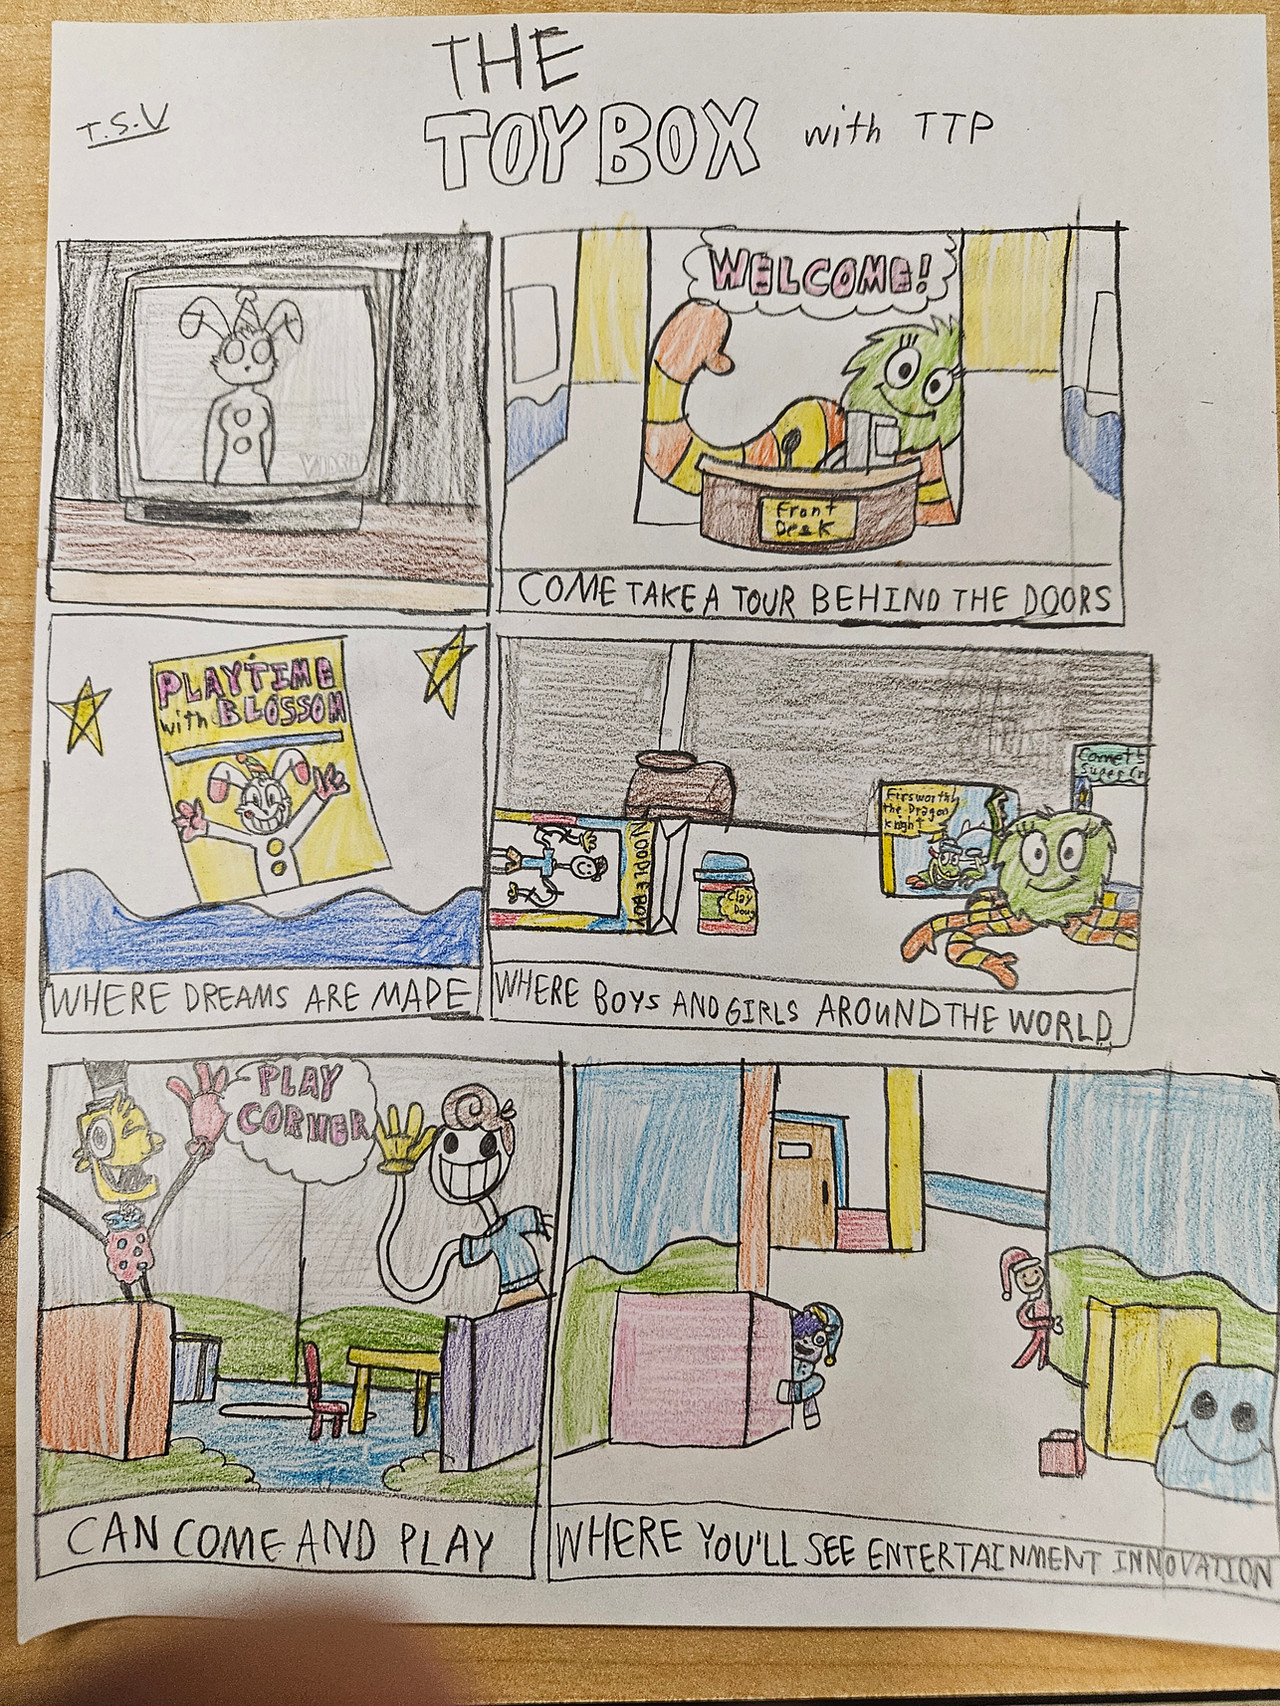 THE
T.S.V
TOYBOX with TTP
WELCOME!
Front
Desk
COME TAKE A TOUR BEHIND THE DOORS
PLAYTIME
with BLOSSOM
WHERE DREAMS ARE MADE
NOODLE BOY
Clay
Dou
Firsworth
the Dragon
Knight
Comet's
Super Cr
WHERE BOYS AND GIRLS AROUND THE WORLD
PLAY
CORNER
CAN COME AND PLAY
WHERE YOU'LL SEE ENTERTAINMENT INNOVATION